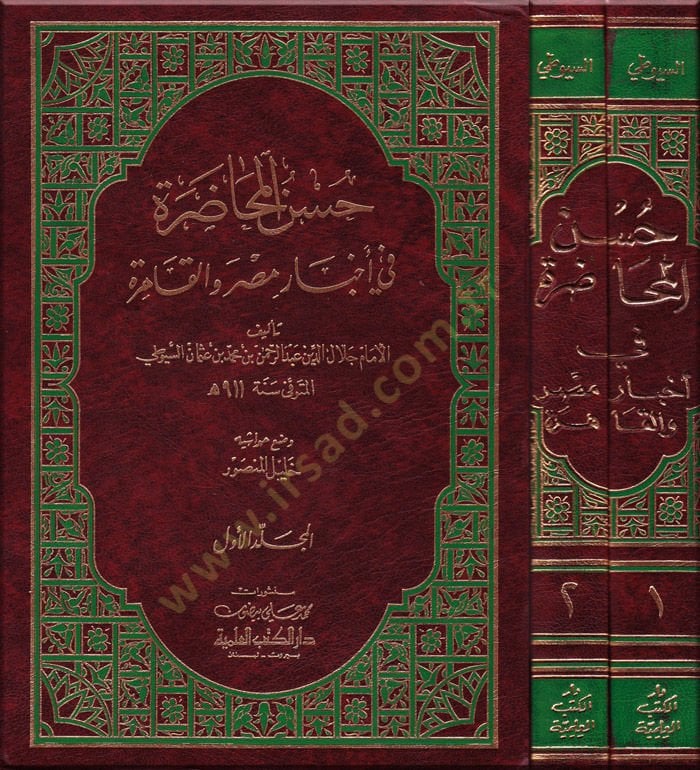 حسن المحاضرة
في أخبار مصر والقاهرة
تأليف
الإمام جلال الدين عبد الرحمن بن محمد بن عثمان السيوطي
المتوفى سنة ٩١١هـ
وضع حواشيه
خليل المنصور
المجلد الأول
منشورات
محمد علي بيضون
دار الكتب العلمية
بيروت - لبنان
www.irsad.com.tr
السيوطي
حُسن
المحاضرة
في
أخبار مصر
والقاهرة
٢
دار
الكتب
العلمية
السيوطي
١
دار
الكتب
العلمية